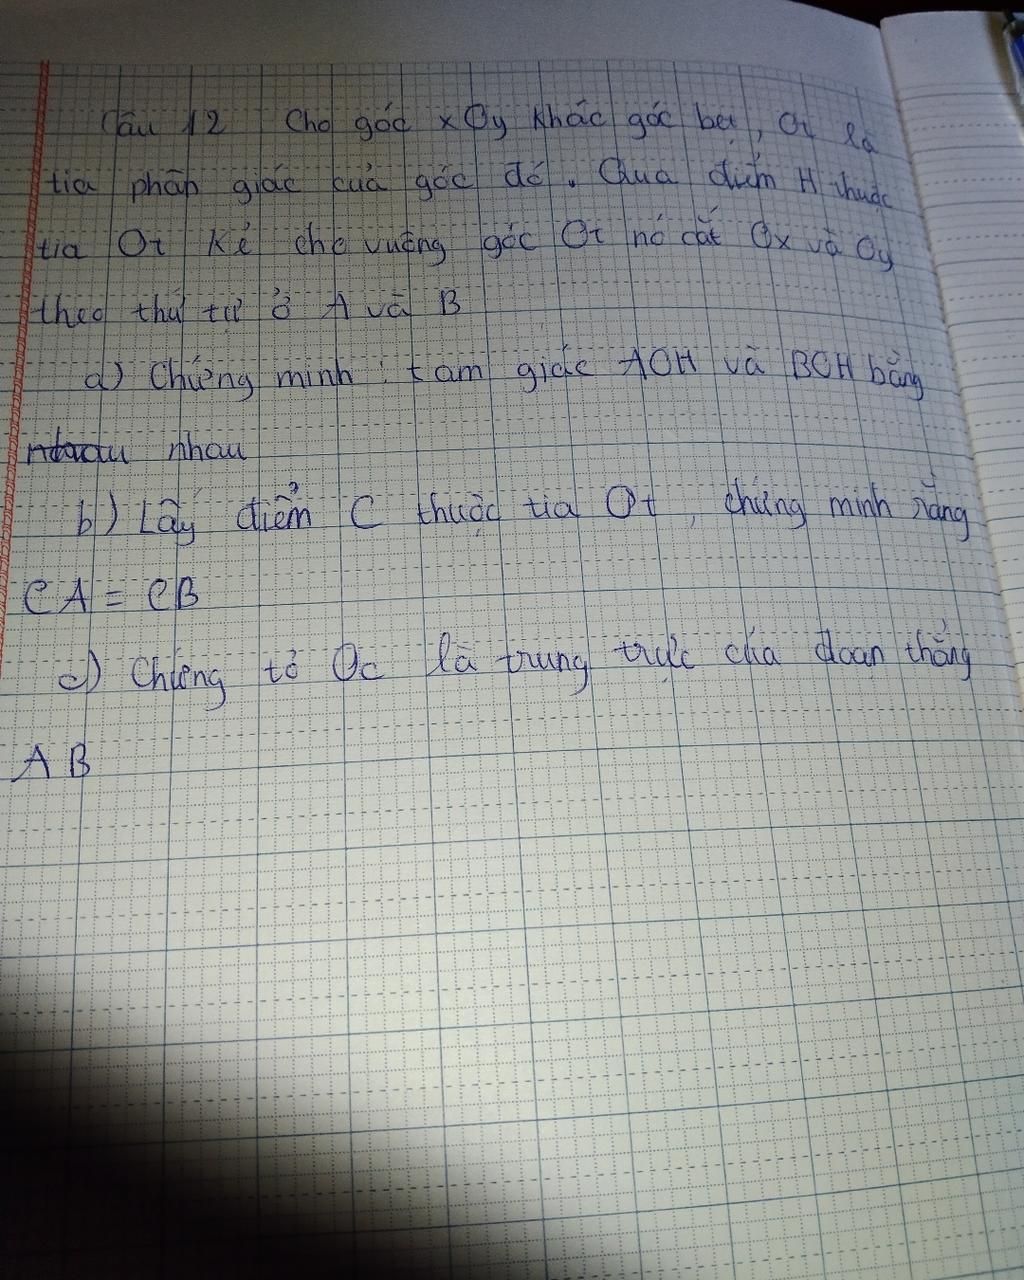 Câu 12 Cho góc xOy khác góc bẹt, Ot là
tia phân giác của góc đó. Qua điểm H thuộc
tia Ot Kẻ cho vuông góc Ot nó cắt Ox và Oy
theo thứ tự ở A và B
a) Chứng minh : tam giác AOH và BOH bằng
nhau
b) Lấy điểm C thuộc tia Ot, chứng minh rằng
CA = CB
c) Chứng tỏ Oc là trung trực của đoan thẳng
AB